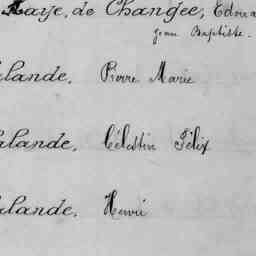 Laye, de Changée, Edoua
Jean Baptiste.
lande, Pierre Marie
lande, Célestin Félix
lande, Henri